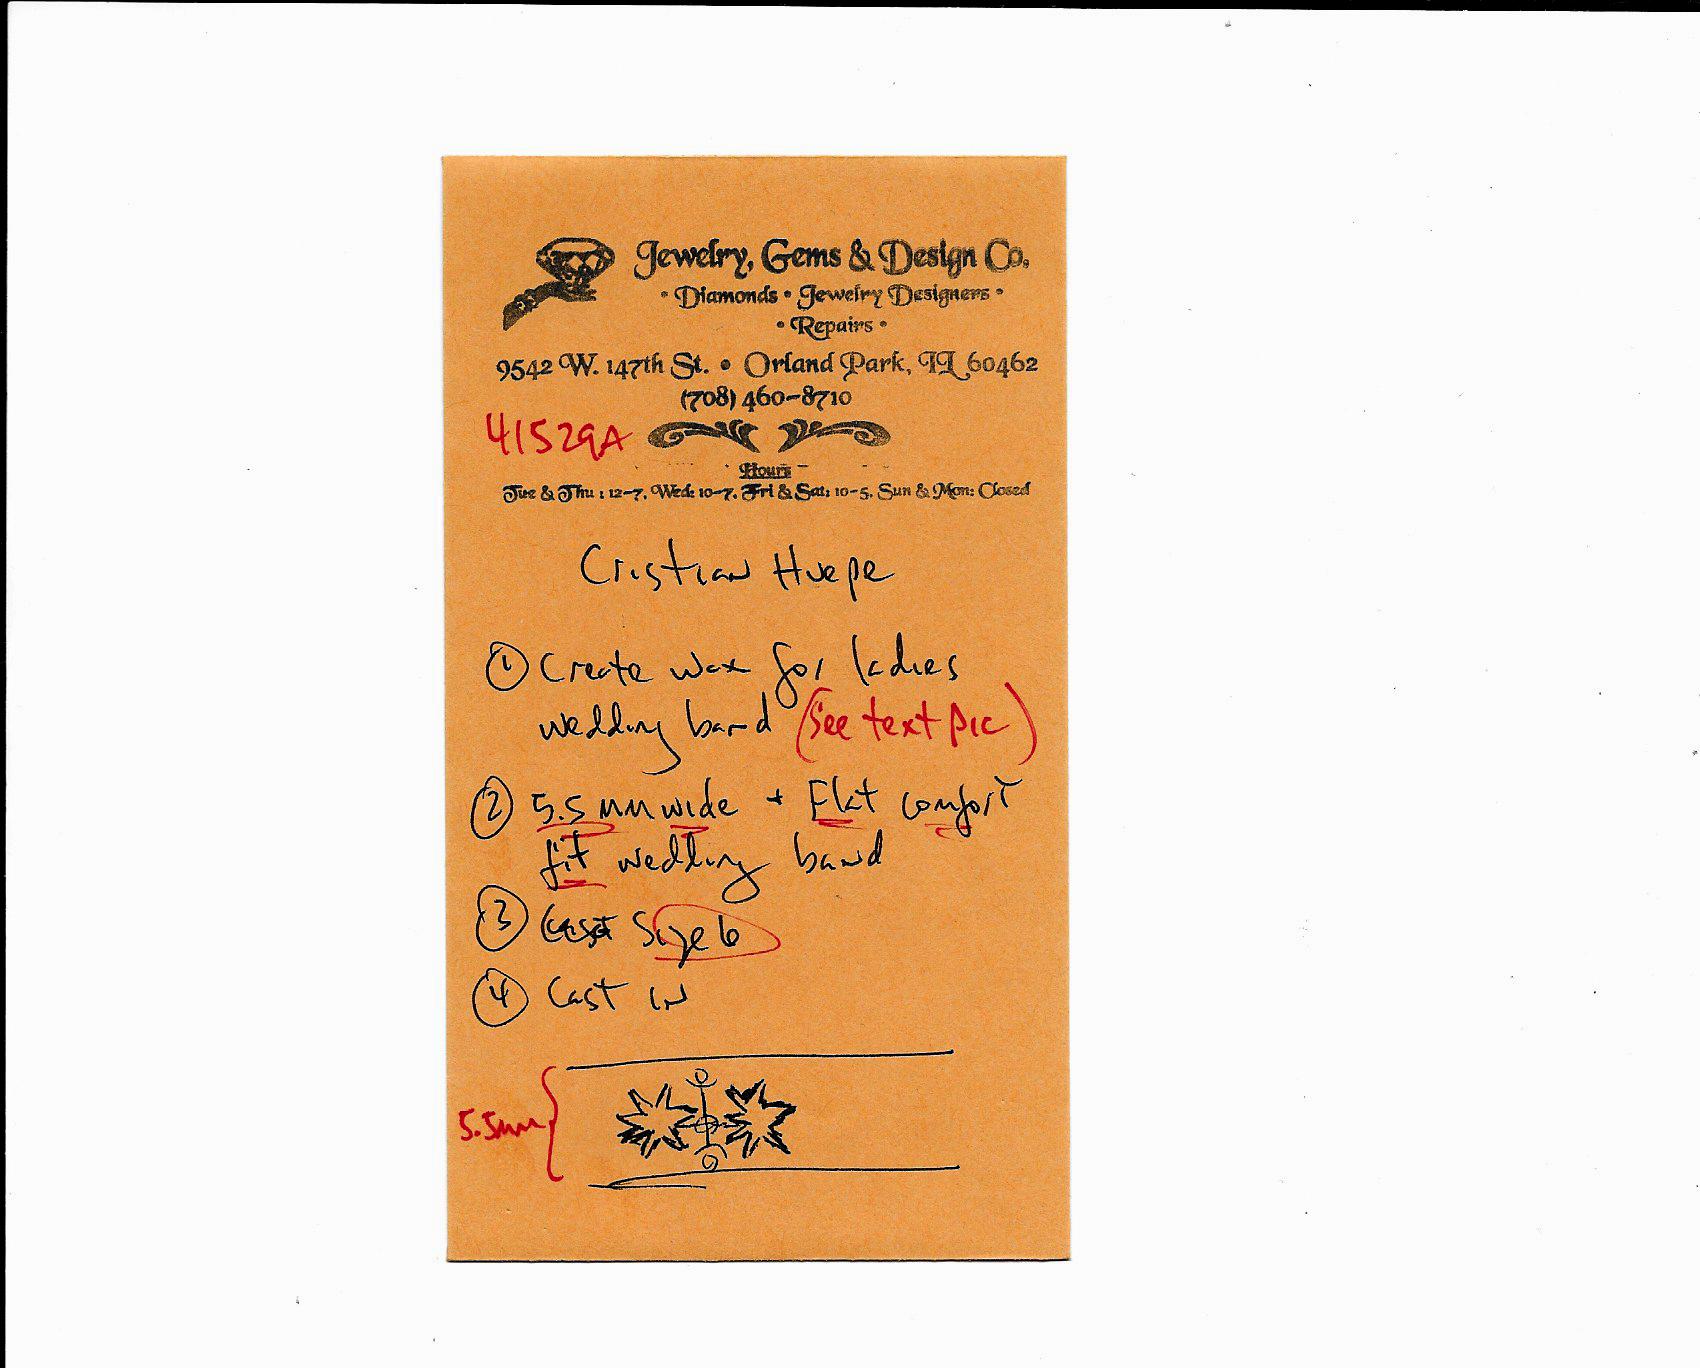 Jewelry, Gems & Design Co.
• Diamonds • Jewelry Designers •
• Repairs •
9542 W. 147th St. • Orland Park, IL 60462
(708) 460-8710
41529A
Hours
Tue & Thu : 12-7, Wed: 10-7, Fri & Sat: 10-5, Sun & Mon: Closed
Cristian Huepe
① Create wax for ladies
wedding band (see text pic)
② 5.5 mm wide + Flat comfort
fit wedding band
③ Size 6
④ Cast in
5.5mm